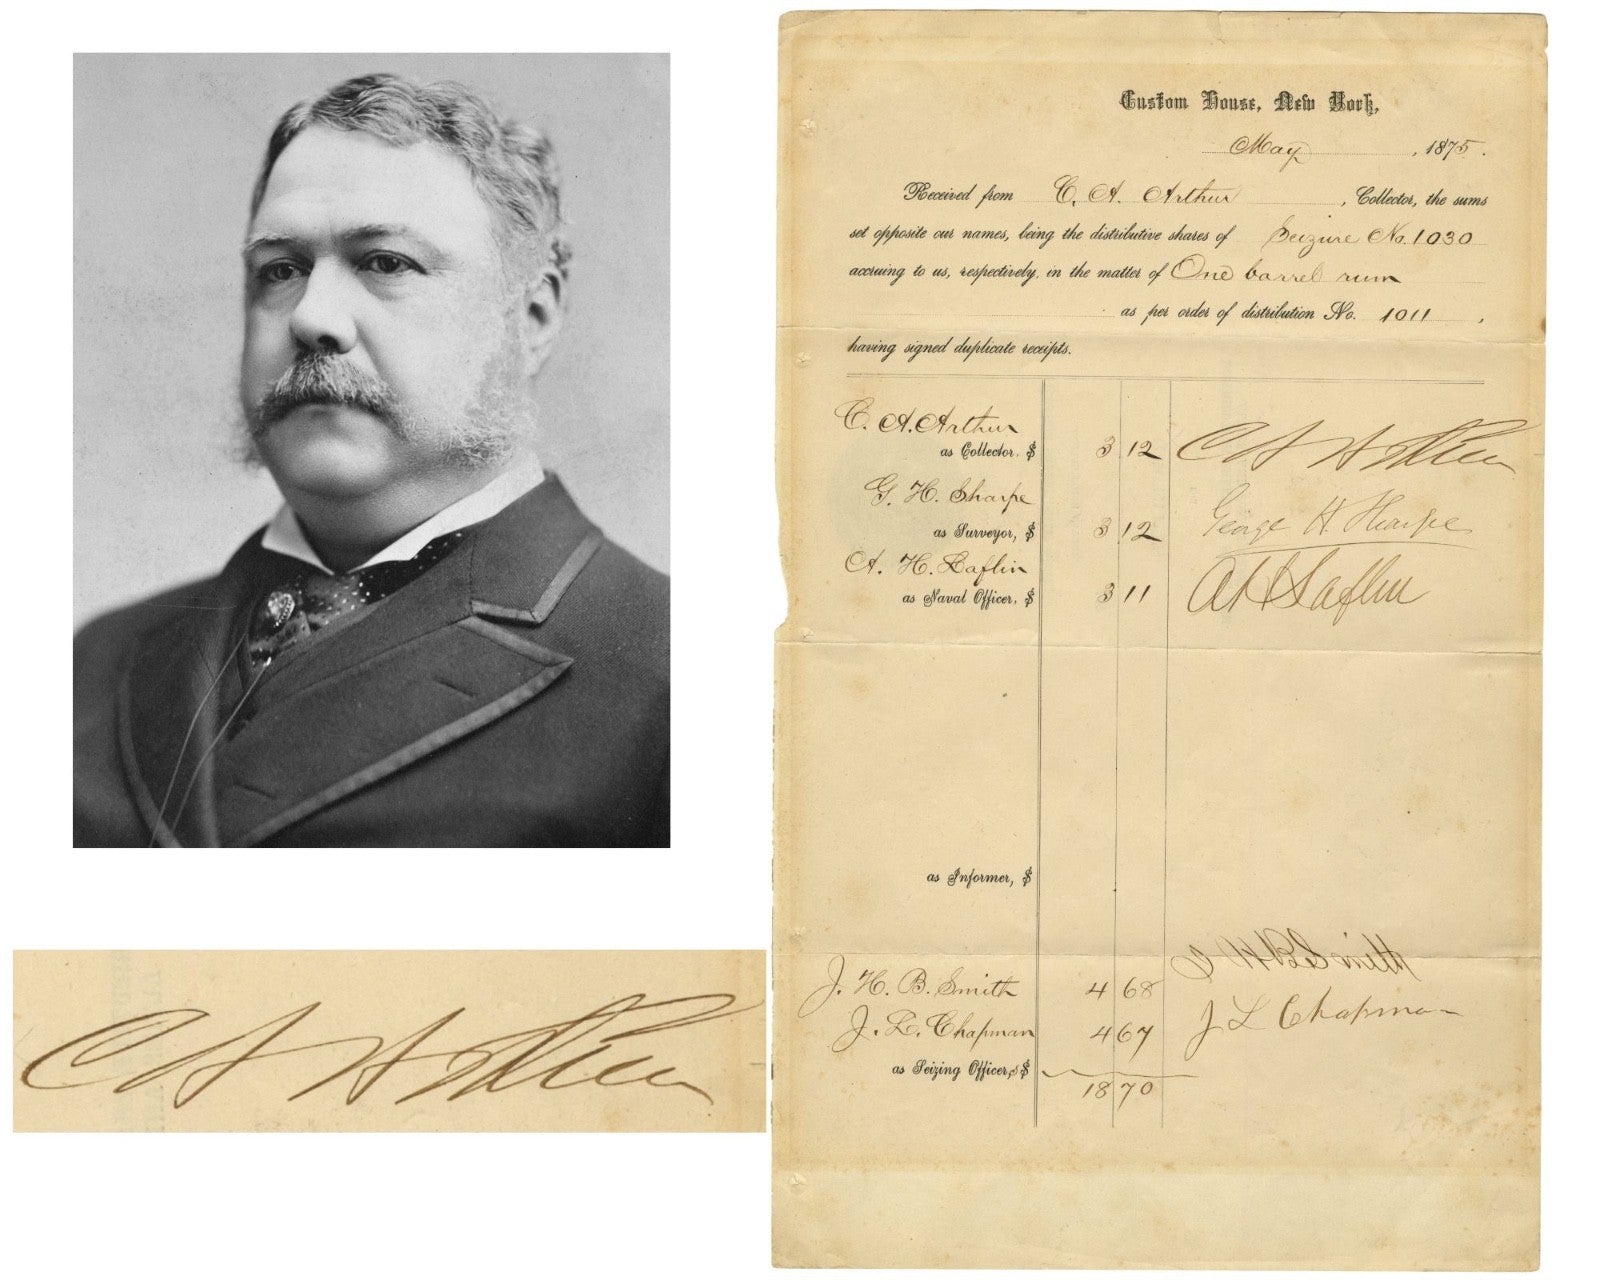 Custom House, New York,
May , 1875.
Received from C. A. Arthur , Collector, the sums
set opposite our names, being the distributive shares of Seizure No. 1030
accruing to us, respectively, in the matter of One barrel rum
as per order of distribution No. 1011 ,
having signed duplicate receipts.
C. A. Arthur
as Collector, $ 3 12 C A Arthur
G. H. Sharpe
as Surveyor, $ 3 12 George H. Sharpe
A. H. Laflin
as Naval Officer, $ 3 11 A H Laflin
as Informer, $
J. H. B. Smith 4 68 J H B Smith
J. L. Chapman 4 67 J L Chapman
as Seizing Officers $
18 70
C A Arthur